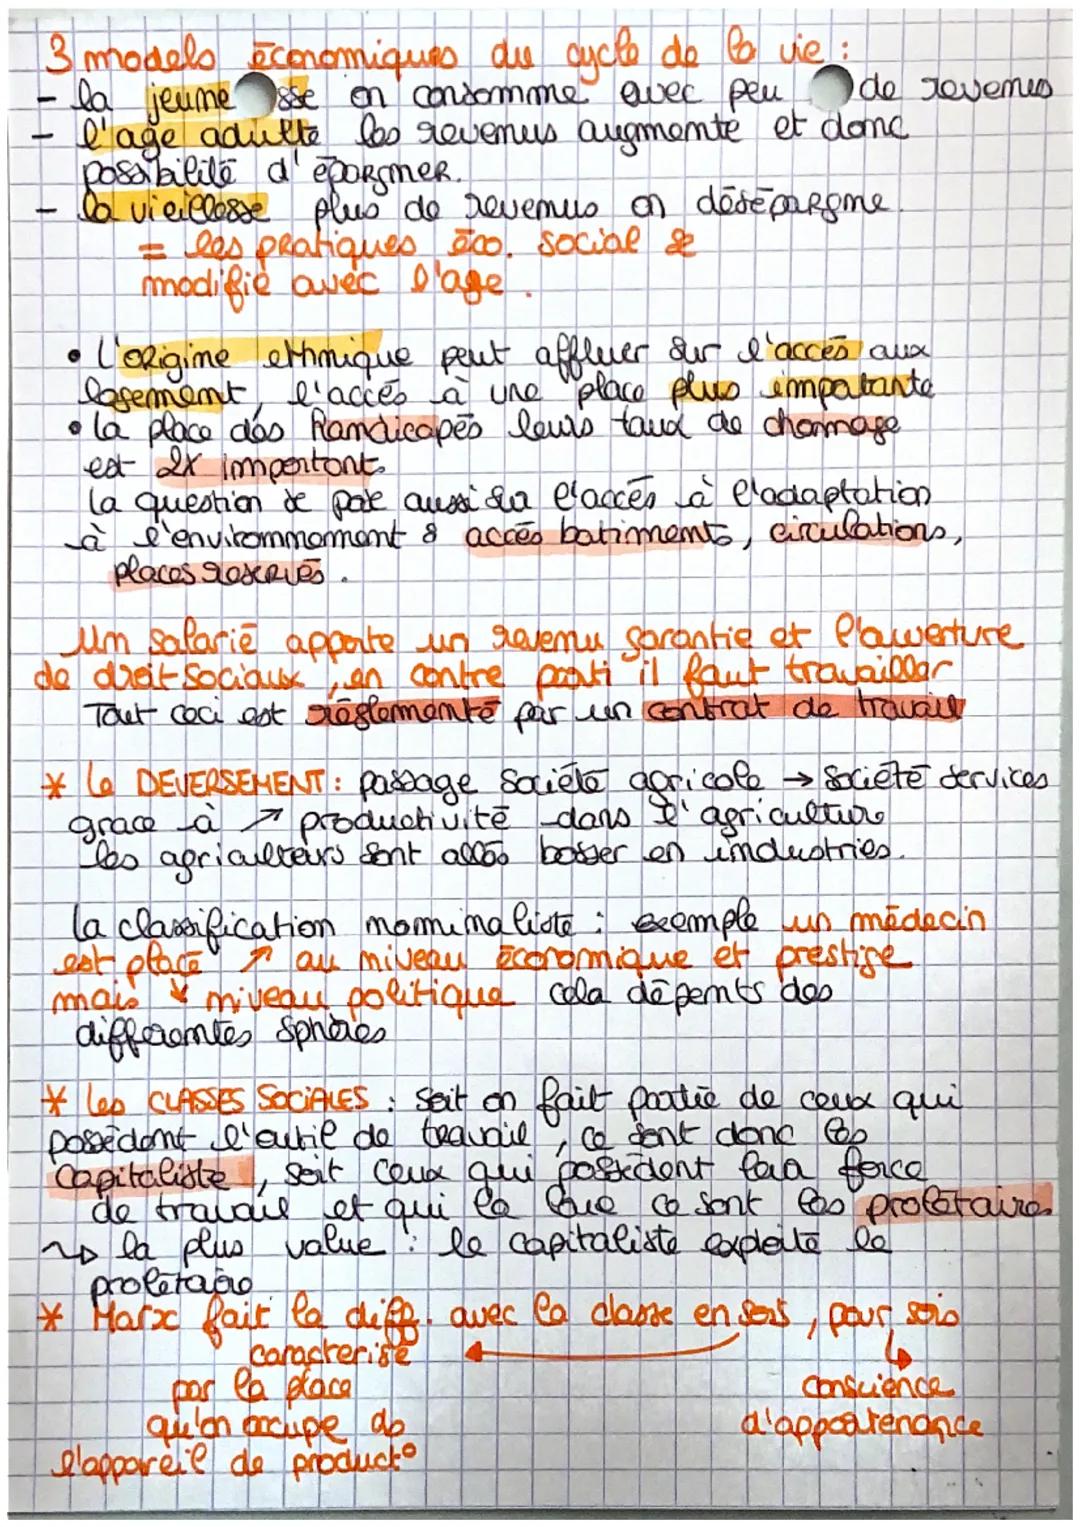 3 models économiques du cycle de la vie :
- la jeunesse on consomme avec peu de revenus
- l'age adulte les revenus augmente et donc
possibilité d'épargner.
- la vieillesse plus de revenus on désépargne.
= les pratiques éco. social se
modifie avec l'age.
• L'origine ethnique peut affluer sur l'accès aux
logement, l'accès à une place plus impotante
• la place des handicapés leurs taux de chomage
est 2x important.
la question se pose aussi sur l'accès à l'adaptation
à l'environnement : accès batiments, circulations,
places reservés.
Un salarié apporte un revenu garantie et l'ouverture
de droit sociaux, en contre parti il faut travailler
Tout ceci est réglementé par un contrat de travail
* le DEVERSEMENT : passage société agricole → société services
grace à ↗ productivité dans l'agriculture
les agriculteurs sont allés bosser en industries.
la classification nominaliste : exemple un médecin
est placé ↗ au niveau économique et prestige
mais ↓ niveau politique cela dépents des
differentes sphères
* les CLASSES SOCIALES : soit on fait partie de ceux qui
possèdent l'outil de travail, ce sont donc les
capitaliste, soit ceux qui possèdent laa force
de travail et qui la loue ce sont les prolétaires
↝ la plus value : le capitaliste exploite le
prolétaire
* Marx fait la diff. avec la classe en sois, pour sois
caracterisé
par la place
qu'on occupe ds
l'appareil de product°
conscience
d'appartenance